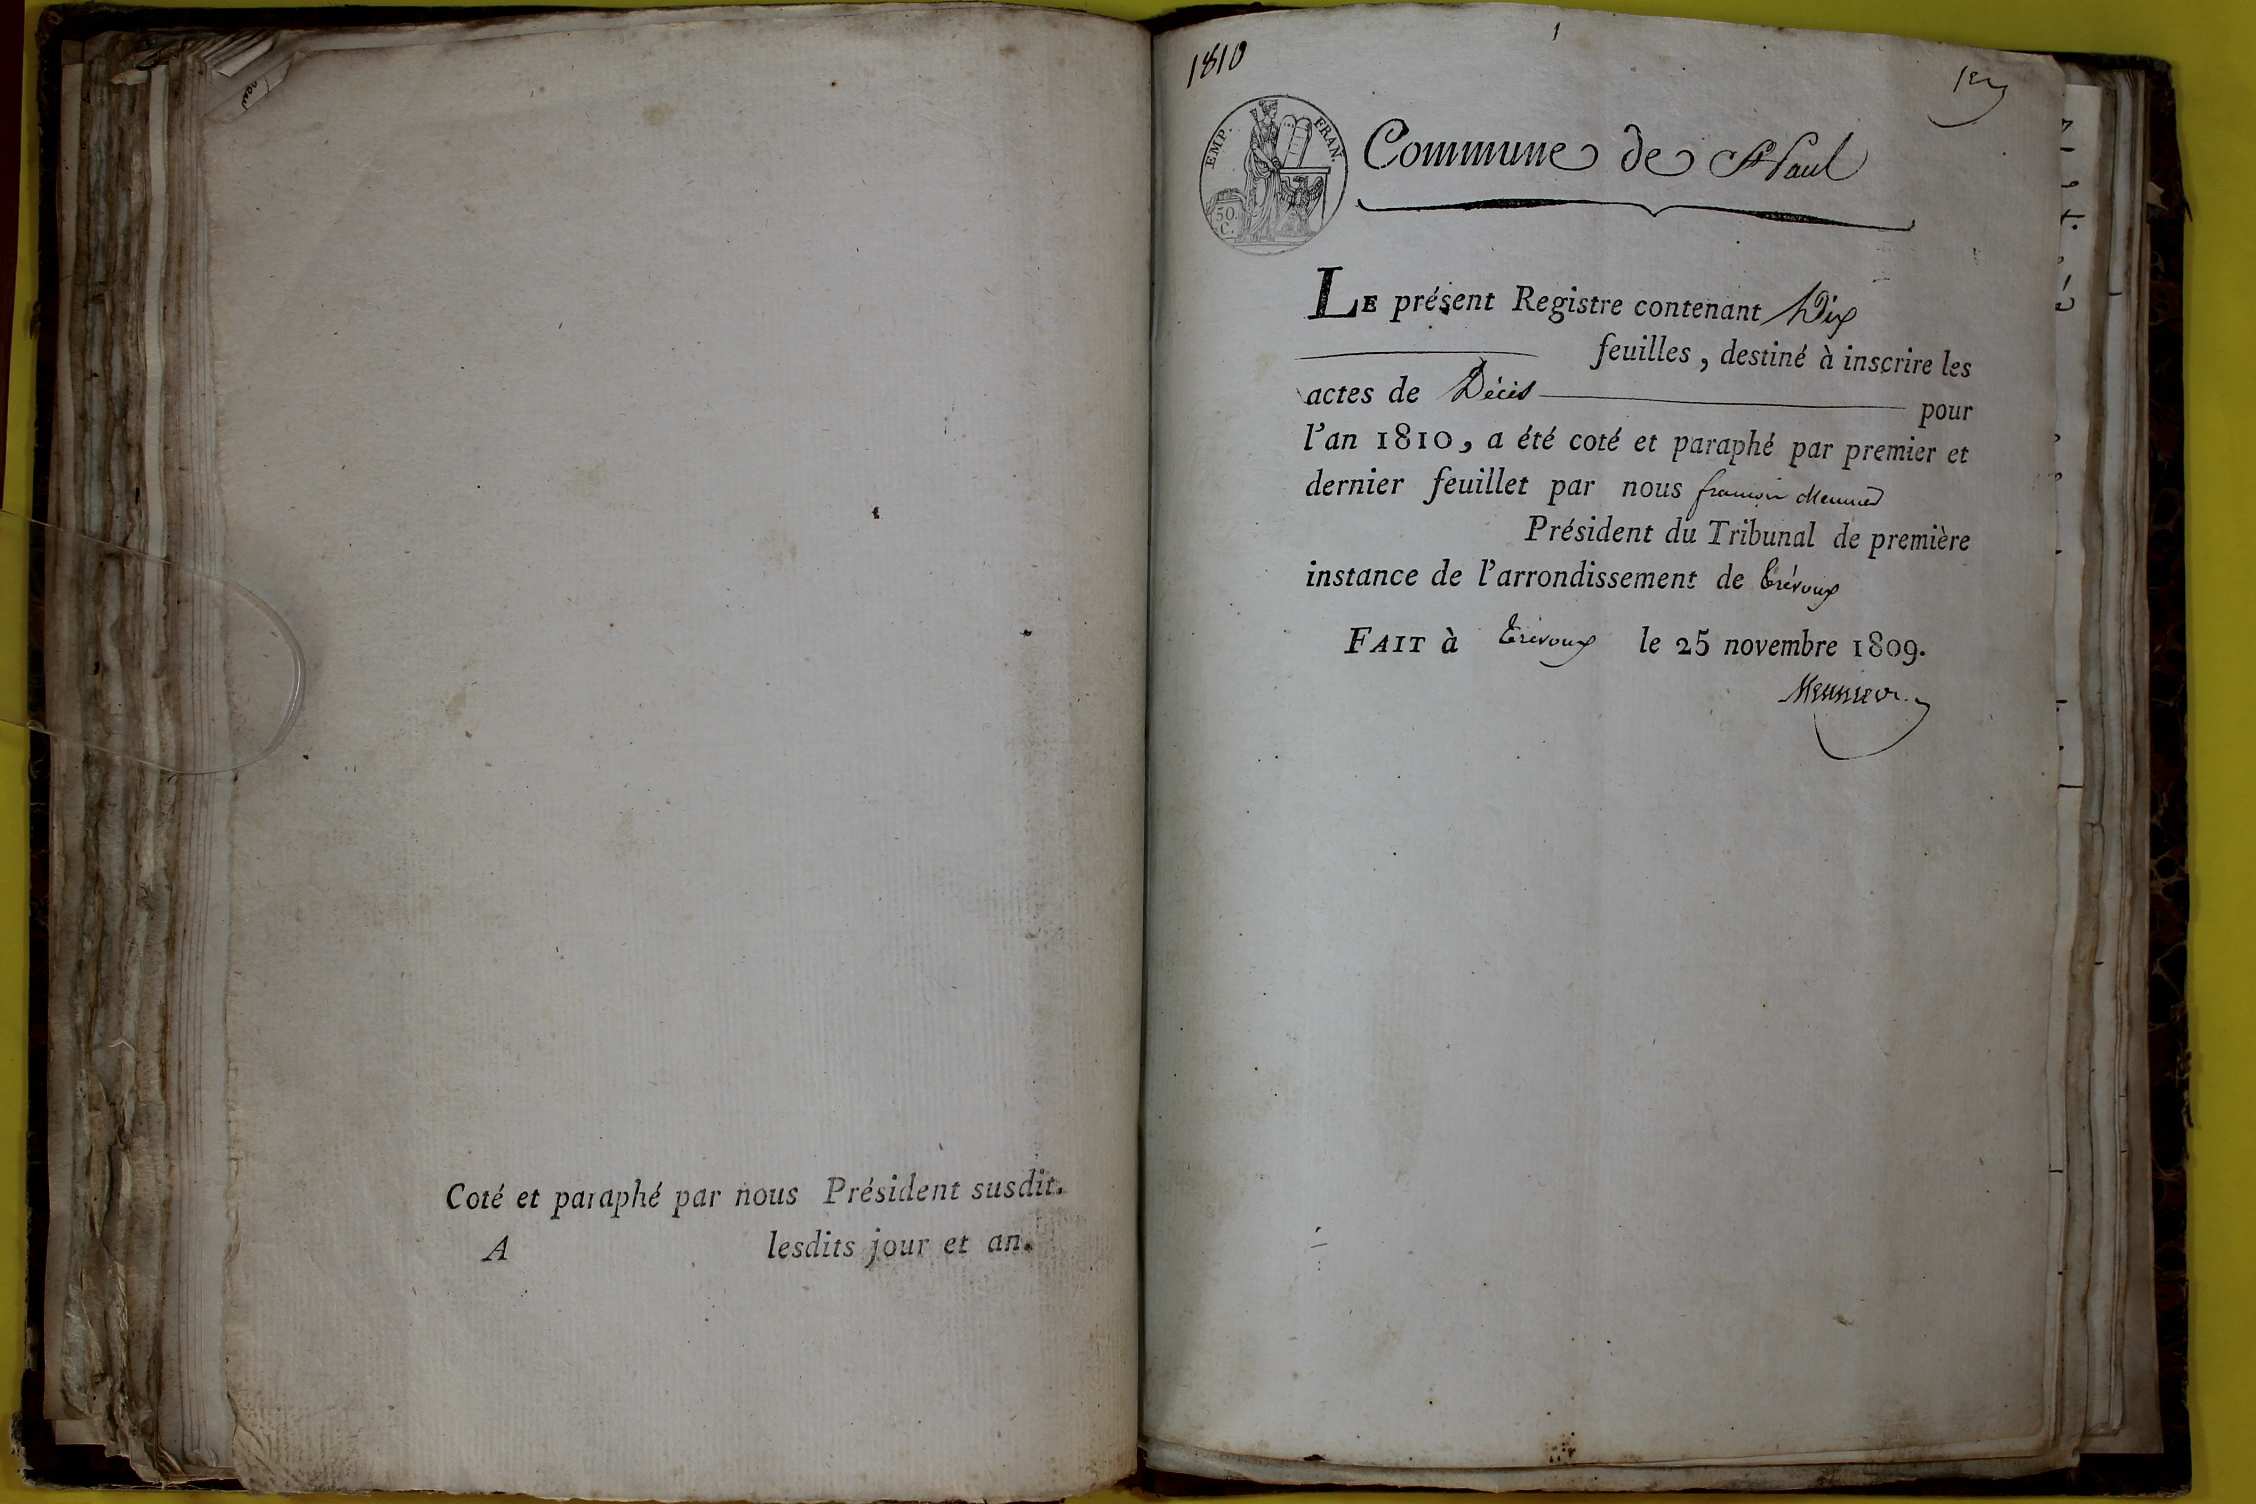 Coté et paraphé par nous Président susdit.
A lesdits jour et an.
1810
1
1er
EMP. FRAN.
50.
C.
Commune de St Paul
LE présent Registre contenant Dix
feuilles, destiné à inscrire les
actes de Décès pour
l'an 1810, a été coté et paraphé par premier et
dernier feuillet par nous françois Meunier
Président du Tribunal de première
instance de l'arrondissement de Trévoux
FAIT à Trévoux le 25 novembre 1809.
Meunier